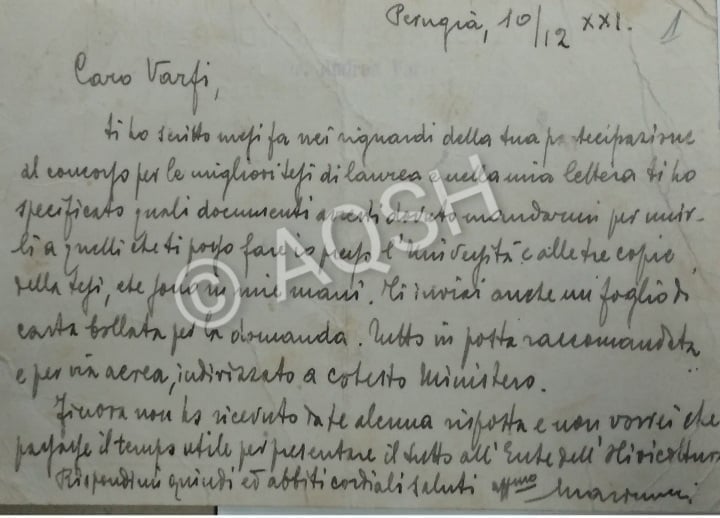 Perugia, 10/12 XXI. 1
Caro Varfi,
ti ho scritto mesi fa nei riguardi della tua partecipazione
al concorso per le migliori tesi di laurea e nella mia lettera ti ho
specificato quali documenti avresti dovuto mandarmi per unir-
li a quelli che ti posso fare io presso l'Università e alle tre copie
della tesi, che sono in mie mani. Ti inviai anche un foglio di
carta bollata per la domanda. Tutto in posta raccomandata
e per via aerea, indirizzato a cotesto Ministero.
Finora non ho ricevuto da te alcuna risposta e non vorrei che
passasse il tempo utile per presentare il tutto all'Ente dell'Olivicoltura
Rispondimi quindi ed abbiti cordiali saluti affmo
© AQSH